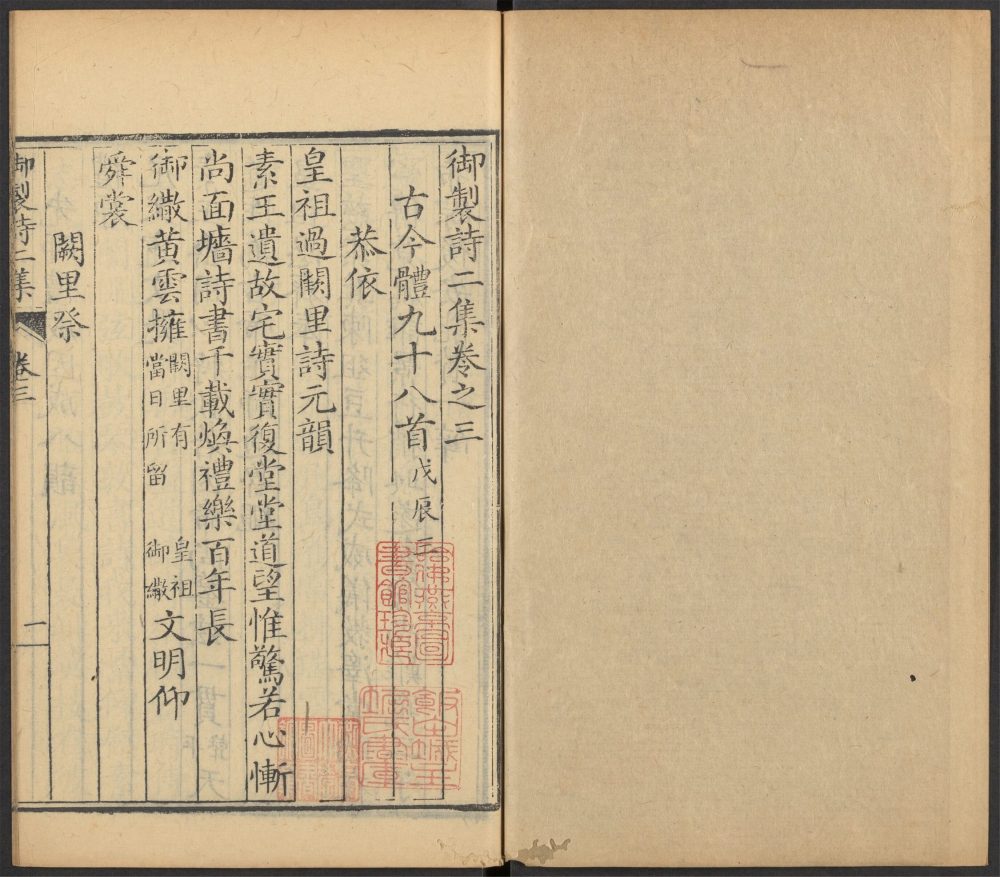 御製詩二集卷之三
古今體九十八首戊辰三
恭依
皇祖過闕里詩元韻
素王遺故宅實實復堂堂道望惟驚若心慚
尚面墻詩書千載煥禮樂百年長
御繖黃雲擁闕里有當日所留皇祖御繖文明仰
舜裳
闕里祭
御製詩二集
卷三
一
哈佛燕京圖書館珍藏